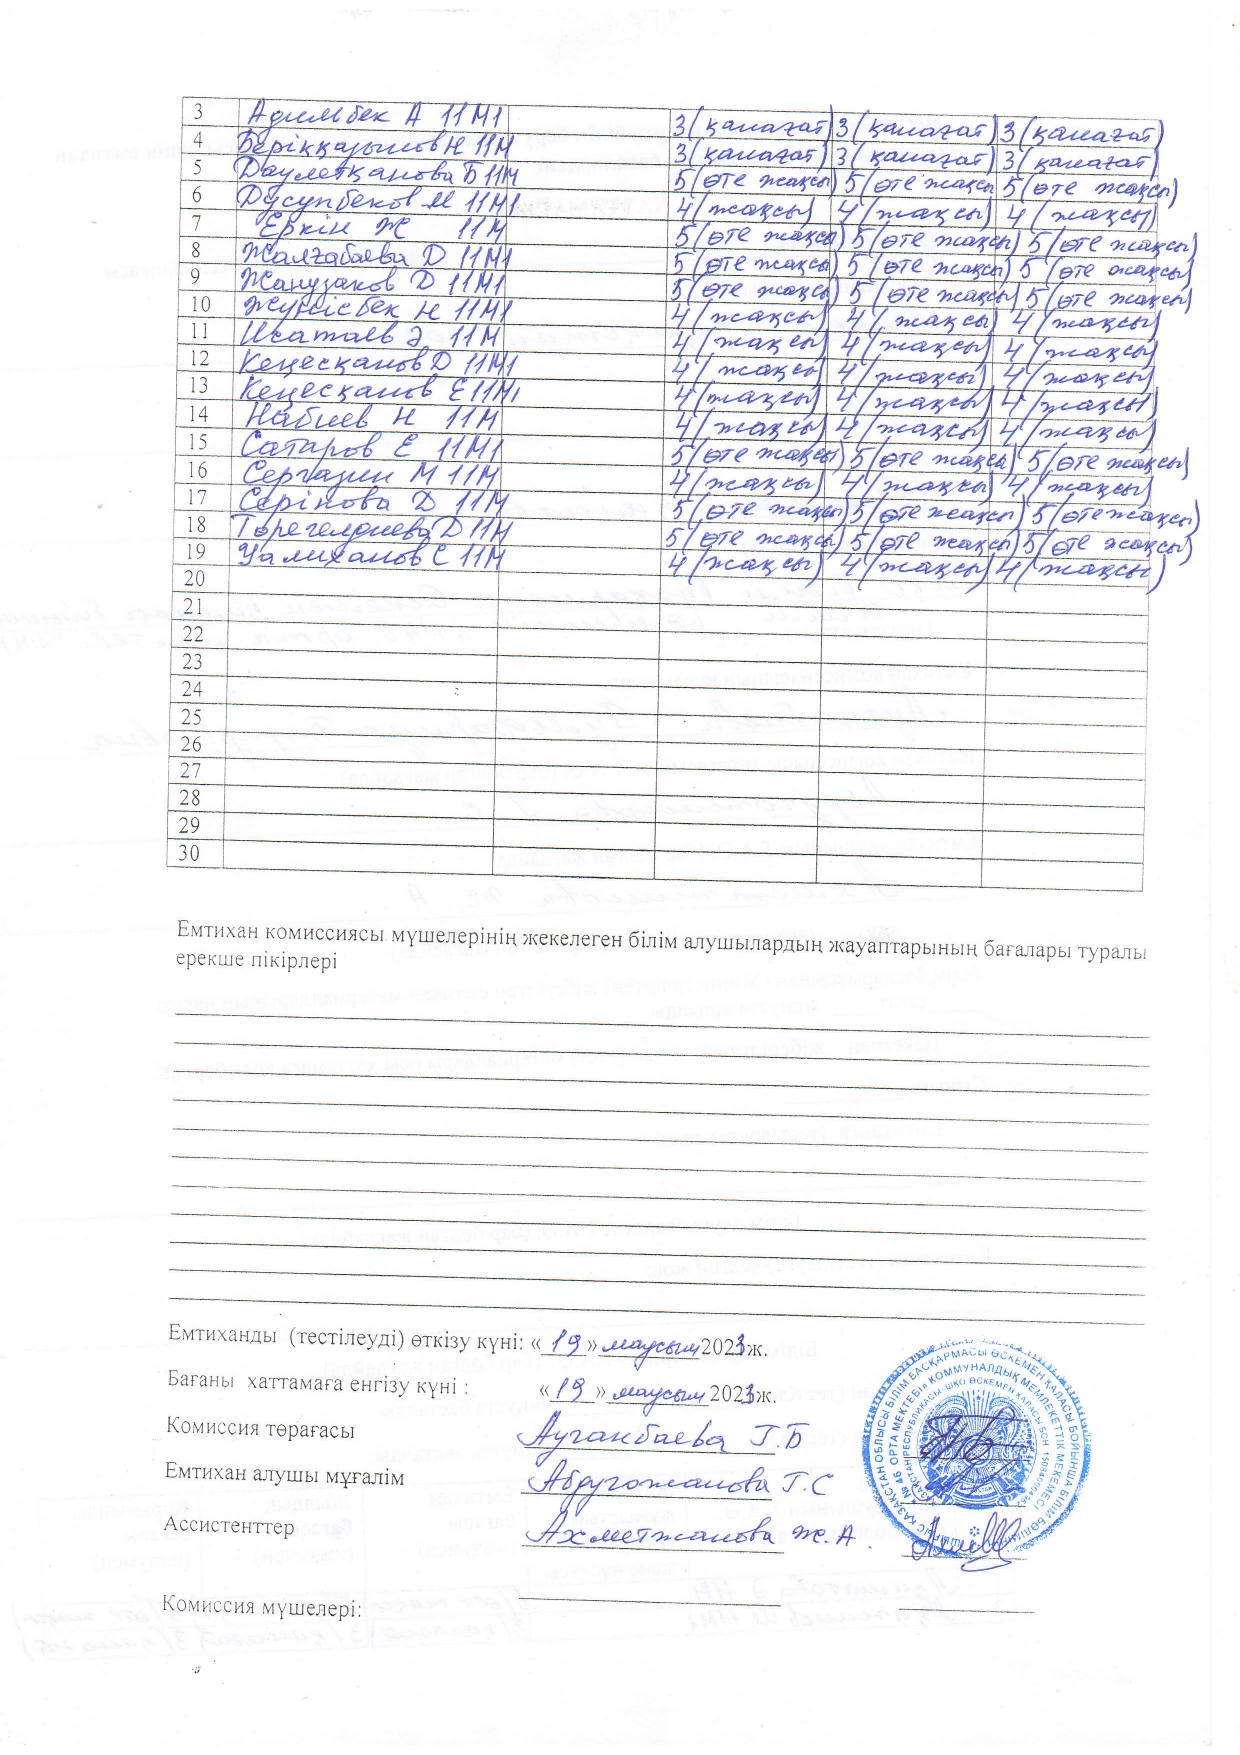 3 Әдилбек А 11М1 3(қанағат) 3(қанағат) 3(қанағат)
4 Беріққазынов Н 11М 3(қанағат) 3(қанағат) 3(қанағат)
5 Даулетқанова Б 11М 5(өте жақсы) 5(өте жақсы 5(өте жақсы)
6 Дүсүпбеков М 11М1 4(жақсы) 4(жақсы) 4(жақсы)
7 Еркін Ж 11М 5(өте жақсы) 5(өте жақсы) 5(өте жақсы)
8 Жалғабаева Д 11М1 5(өте жақсы) 5(өте жақсы) 5(өте жақсы)
9 Жанузаков Д 11М1 5(өте жақсы) 5(өте жақсы) 5(өте жақсы)
10 Жүнісбек Н 11М1 4(жақсы) 4(жақсы) 4(жақсы)
11 Исатаев Ә 11М 4(жақсы) 4(жақсы) 4(жақсы)
12 Кеңесқанов Д 11М1 4(жақсы) 4(жақсы) 4(жақсы)
13 Кеңесқанов Е 11М1 4(жақсы) 4(жақсы) 4(жақсы)
14 Набиев Н 11М 4(жақсы) 4(жақсы) 4(жақсы)
15 Сатаров Е 11М1 5(өте жақсы) 5(өте жақсы) 5(өте жақсы)
16 Сергазин М 11М 4(жақсы) 4(жақсы) 4(жақсы)
17 Серікова Д 11М 5(өте жақсы) 5(өте жақсы) 5(өте жақсы)
18 Төрегелдиева Д 11М 5(өте жақсы) 5(өте жақсы) 5(өте жақсы)
19 Уалиханов С 11М 4(жақсы) 4(жақсы) 4(жақсы)
20
21
22
23
24
25
26
27
28
29
30
Емтихан комиссиясы мүшелерінің жекелеген білім алушылардың жауаптарының бағалары туралы
ерекше пікірлері
Емтиханды (тестілеуді) өткізу күні: « 19 » маусым 2023ж.
Бағаны хаттамаға енгізу күні : « 19 » маусым 2023ж.
Комиссия төрағасы Ауганбаева Г.Б
Емтихан алушы мұғалім Абдугожанова Г.С
Ассистенттер Ахметжанова Ж.А.
Комиссия мүшелері:
ШЫҒЫС ҚАЗАҚСТАН ОБЛЫСЫ БІЛІМ БАСҚАРМАСЫ ӨСКЕМЕН ҚАЛАСЫ БОЙЫНША БІЛІМ БӨЛІМІНІҢ
№ 46 ОРТА МЕКТЕБІ» КОММУНАЛДЫҚ МЕМЛЕКЕТТІК МЕКЕМЕСІ
ҚАЗАҚСТАН РЕСПУБЛИКАСЫ ШҚО ӨСКЕМЕН ҚАЛАСЫ БСН